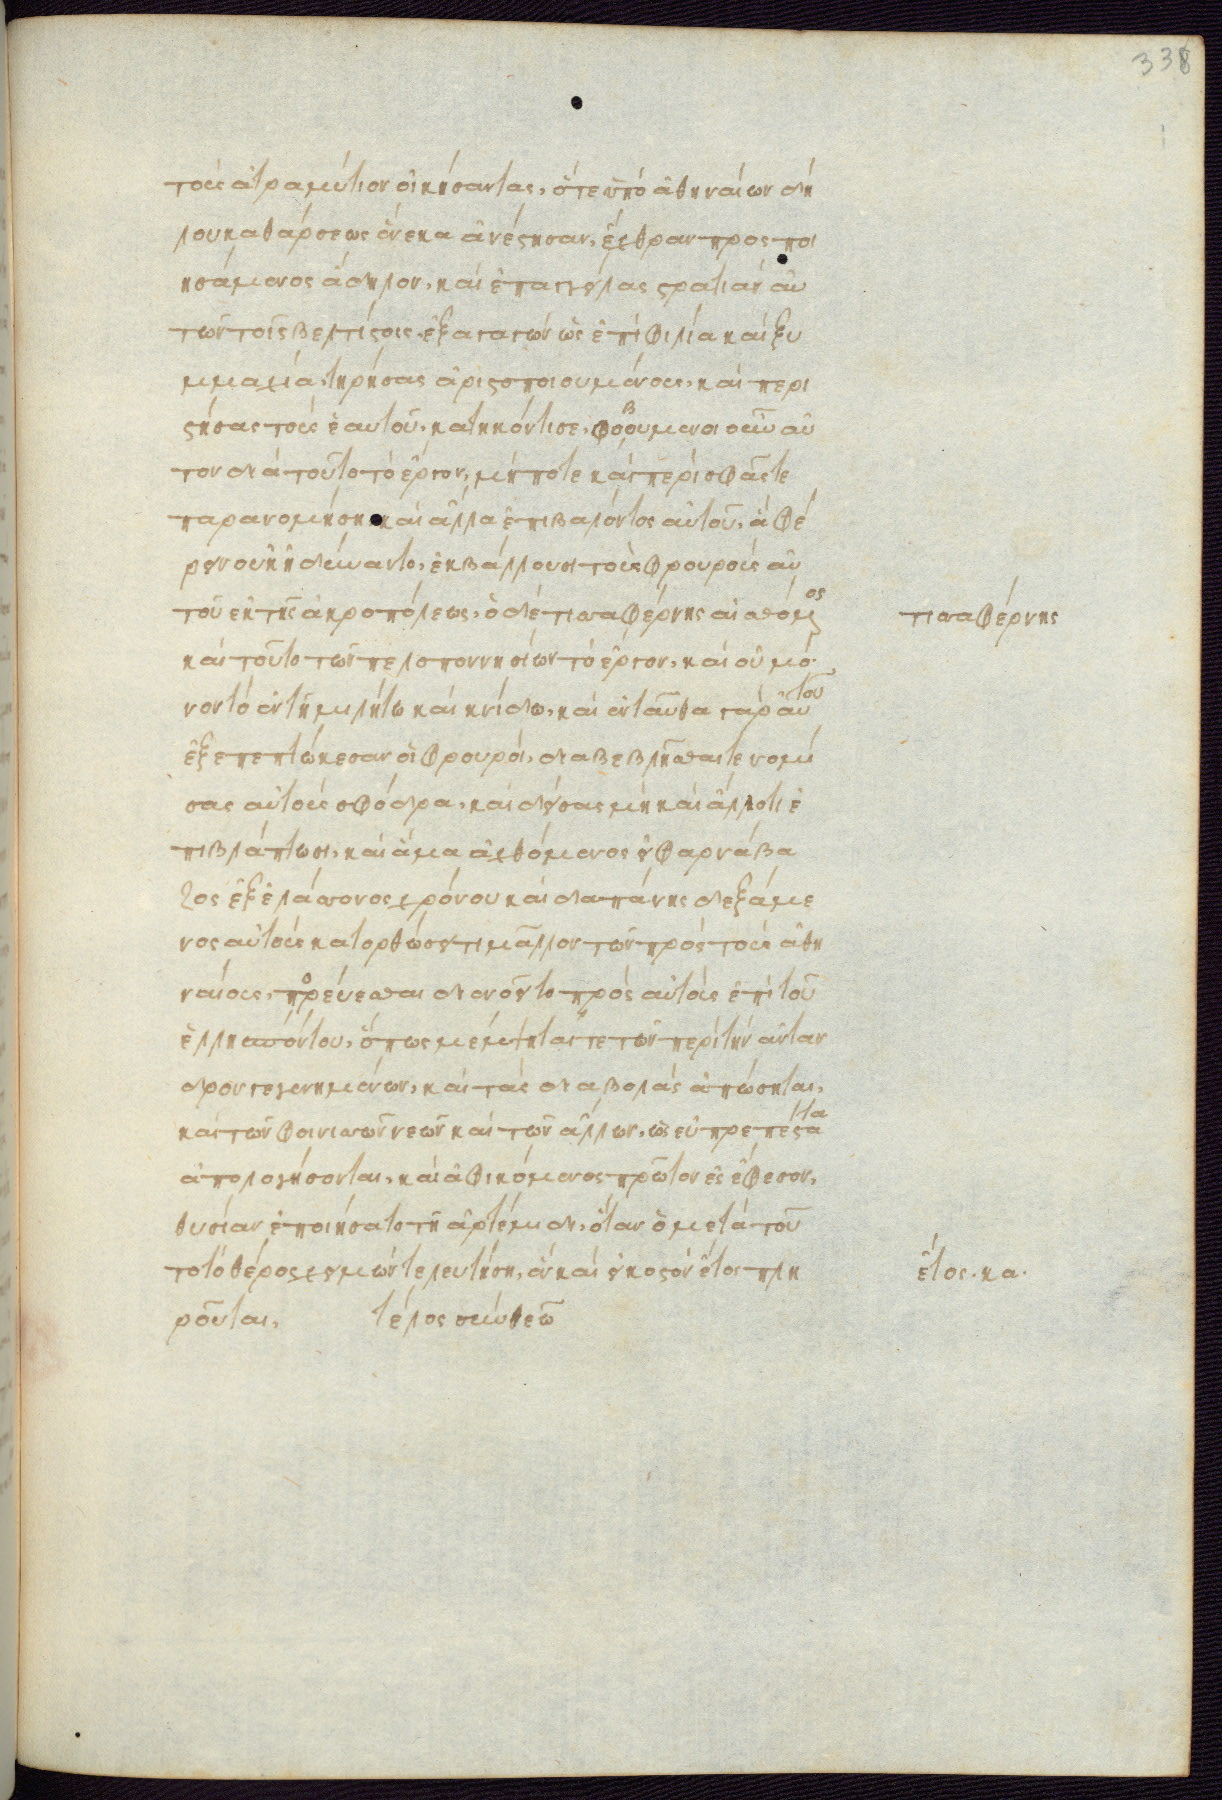 338
τοὺς ἀτραμύτιον οἰκήσαντας, ὅτε ὑπὸ ἀθηναίων δή
λου καθάρσεως ἕνεκα ἀνέστησαν, ἔχθραν προσποι
ησάμενος ἄδηλον, καὶ ἐπαγγείλας στρατιὰν αὐ
τῶν τοῖς βελτίστοις, ἐξαγαγὼν ὡς ἐπὶ φιλία καὶ ξυ
μμαχία, τηρήσας ἀριστοποιουμένους, καὶ περι
στήσας τοὺς ἑαυτοῦ, κατηκόντισε, φοβούμενοι οὖν αὐ
τὸν διὰ τοῦτο τὸ ἔργον, μήποτε καὶ περὶ σφᾶς τε
παρανομήση, καὶ ἄλλα ἐπιβαλόντος αὐτοῦ, ἃ φέ
ρειν οὐκ ἠδύναντο, ἐκβάλλουσι τοὺς φρουροὺς αὐ
τοῦ ἐκ τῆς ἀκροπόλεως, ὁ δὲ τισσαφέρνης αἰσθόμενος
τισσαφέρνης
καὶ τοῦτο τῶν πελοποννησίων τὸ ἔργον, καὶ οὐ μό
νον τὸ ἐν τῆ μιλήτω καὶ κνίδω, καὶ ἐνταῦθα γὰρ αὐτοῦ
ἐξεπεπτώκεσαν οἱ φρουροί, διαβεβλῆσθαί τε νομί
σας αὐτοῖς σφόδρα, καὶ δείσας μὴ καὶ ἄλλο τι ἐ
πιβλάπτωσι, καὶ ἅμα ἀχθόμενος εἰ φαρνάβα
ζος ἐξ ἐλάσσονος χρόνου καὶ δαπάνης δεξάμε
νος αὐτοὺς κατορθώσει τι μᾶλλον τῶν πρὸς τοὺς ἀθη
ναίους, πορεύεσθαι διενοεῖτο πρὸς αὐτοὺς ἐπὶ τοῦ
ἑλλησπόντου, ὅπως μέμψηταί τε τῶν περὶ τὴν ἄνταν
δρον γεγενημένων, καὶ τὰς διαβολὰς ἀπώσηται,
καὶ τῶν φοινισσῶν νεῶν καὶ τῶν ἄλλων, ὡς εὐπρεπέστατα
ἀπολογήσονται, καὶ ἀφικόμενος πρῶτον ἐς ἔφεσον,
θυσίαν ἐποιήσατο τῆ ἀρτέμιδι, ὅταν ὁ μετὰ τοῦ
το τὸ θέρος χειμὼν τελευτήση, ἓν καὶ εἰκοστὸν ἔτος πλη
ἔτος. κα.
ροῦται, τέλος σὺν θεῶ